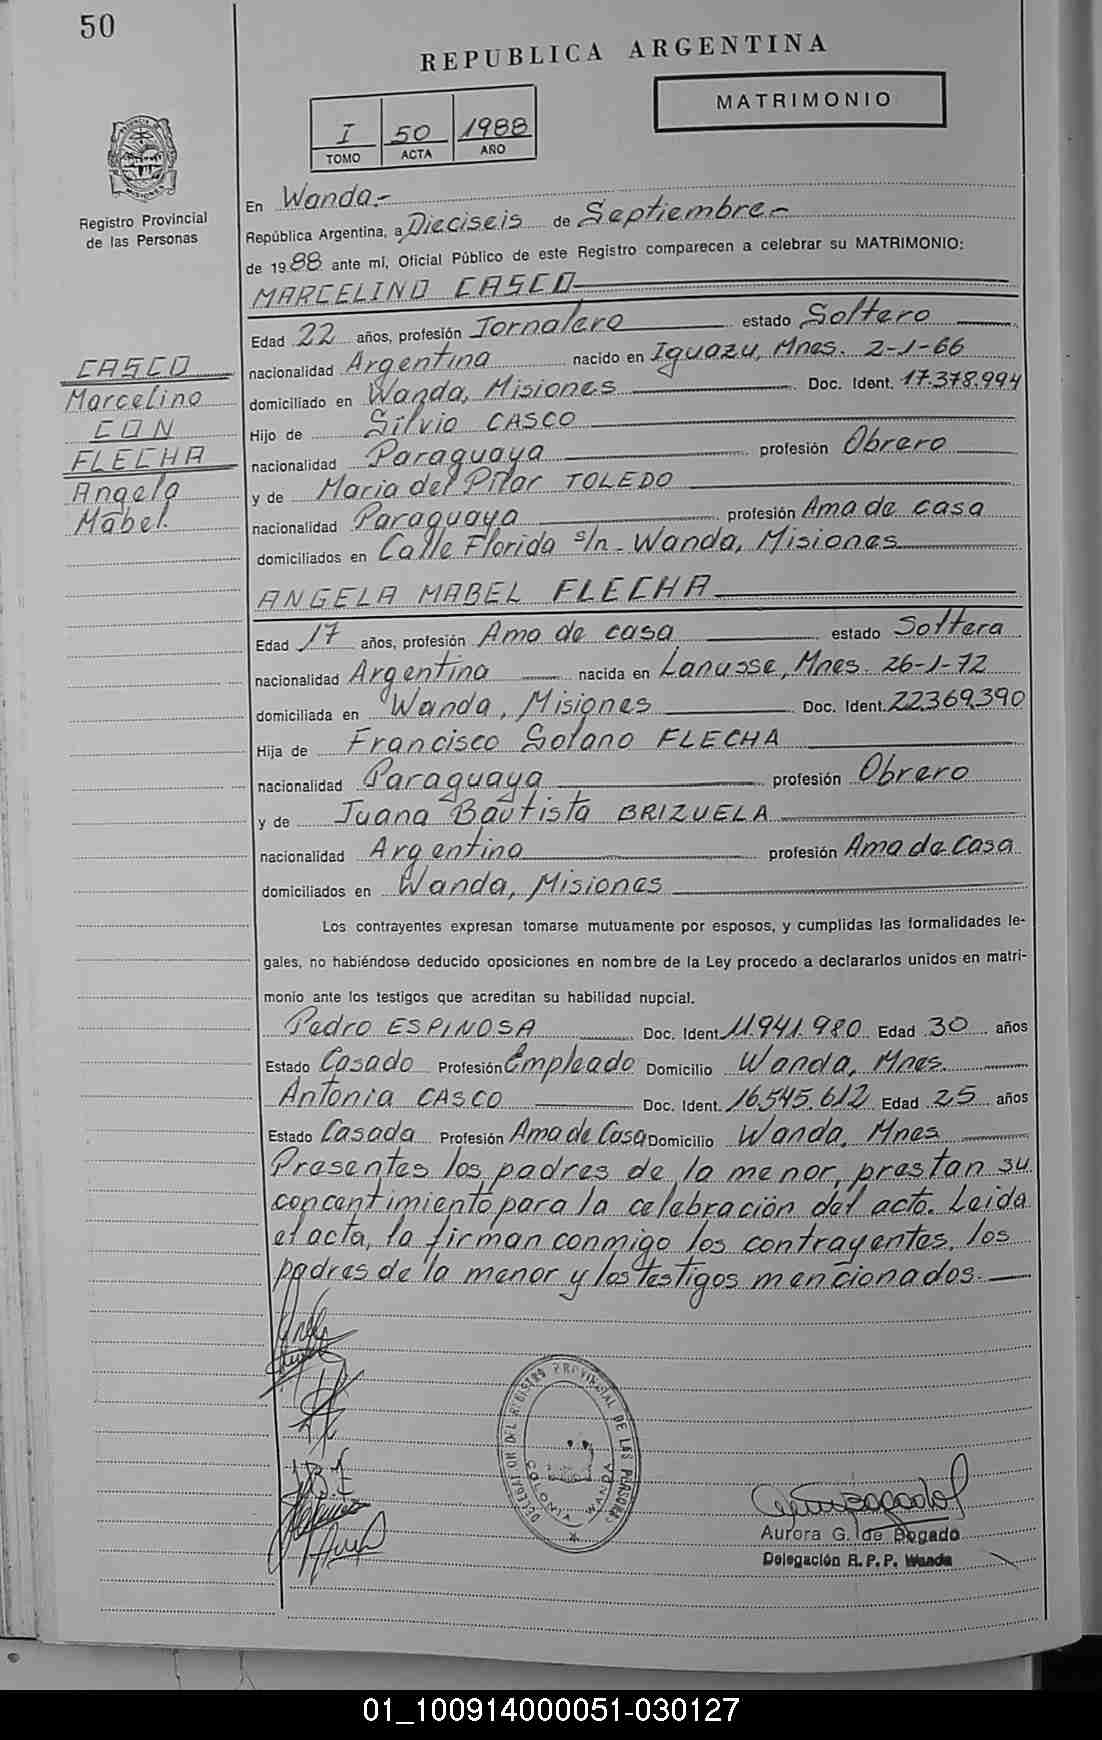 50
REPUBLICA ARGENTINA
MATRIMONIO
I 50 1988
TOMO ACTA AÑO
Registro Provincial
de las Personas
En Wanda.-
República Argentina, a Dieciseis de Septiembre.-
de 1988 ante mí, Oficial Público de este Registro comparecen a celebrar su MATRIMONIO:
MARCELINO CASCO
Edad 22 años, profesión Jornalero estado Soltero
nacionalidad Argentina nacido en Iguazu, Mnes. 2-1-66
domiciliado en Wanda, Misiones Doc. Ident. 17.378.994
Hijo de Silvio CASCO
nacionalidad Paraguaya profesión Obrero
y de Maria del Pilar TOLEDO
nacionalidad Paraguaya profesión Ama de casa
domiciliados en Calle Florida s/n - Wanda, Misiones
CASCO
Marcelino
CON
FLECHA
Angela
Mabel.
ANGELA MABEL FLECHA
Edad 17 años, profesión Ama de casa estado Soltera
nacionalidad Argentina nacida en Lanusse, Mnes. 26-1-72
domiciliada en Wanda, Misiones Doc. Ident. 22.369.390
Hija de Francisco Solano FLECHA
nacionalidad Paraguaya profesión Obrero
y de Juana Bautista BRIZUELA
nacionalidad Argentina profesión Ama de Casa
domiciliados en Wanda, Misiones
Los contrayentes expresan tomarse mutuamente por esposos, y cumplidas las formalidades le-
gales, no habiéndose deducido oposiciones en nombre de la Ley procedo a declararlos unidos en matri-
monio ante los testigos que acreditan su habilidad nupcial.
Pedro ESPINOSA Doc. Ident. 11.941.980 Edad 30 años
Estado Casado Profesión Empleado Domicilio Wanda, Mnes.
Antonia CASCO Doc. Ident. 16.545.612 Edad 25 años
Estado Casada Profesión Ama de Casa Domicilio Wanda, Mnes
Presentes los padres de la menor, prestan su
concentimiento para la celebración del acto. Leida
el acta, la firman conmigo los contrayentes, los
padres de la menor y los testigos mencionados.
J.B.F
DELEGACION DEL REGISTRO PROVINCIAL DE LAS PERSONAS
COLONIA WANDA
Aurora G. de Bogado
Delegación R. P. P. Wanda
01_100914000051-030127